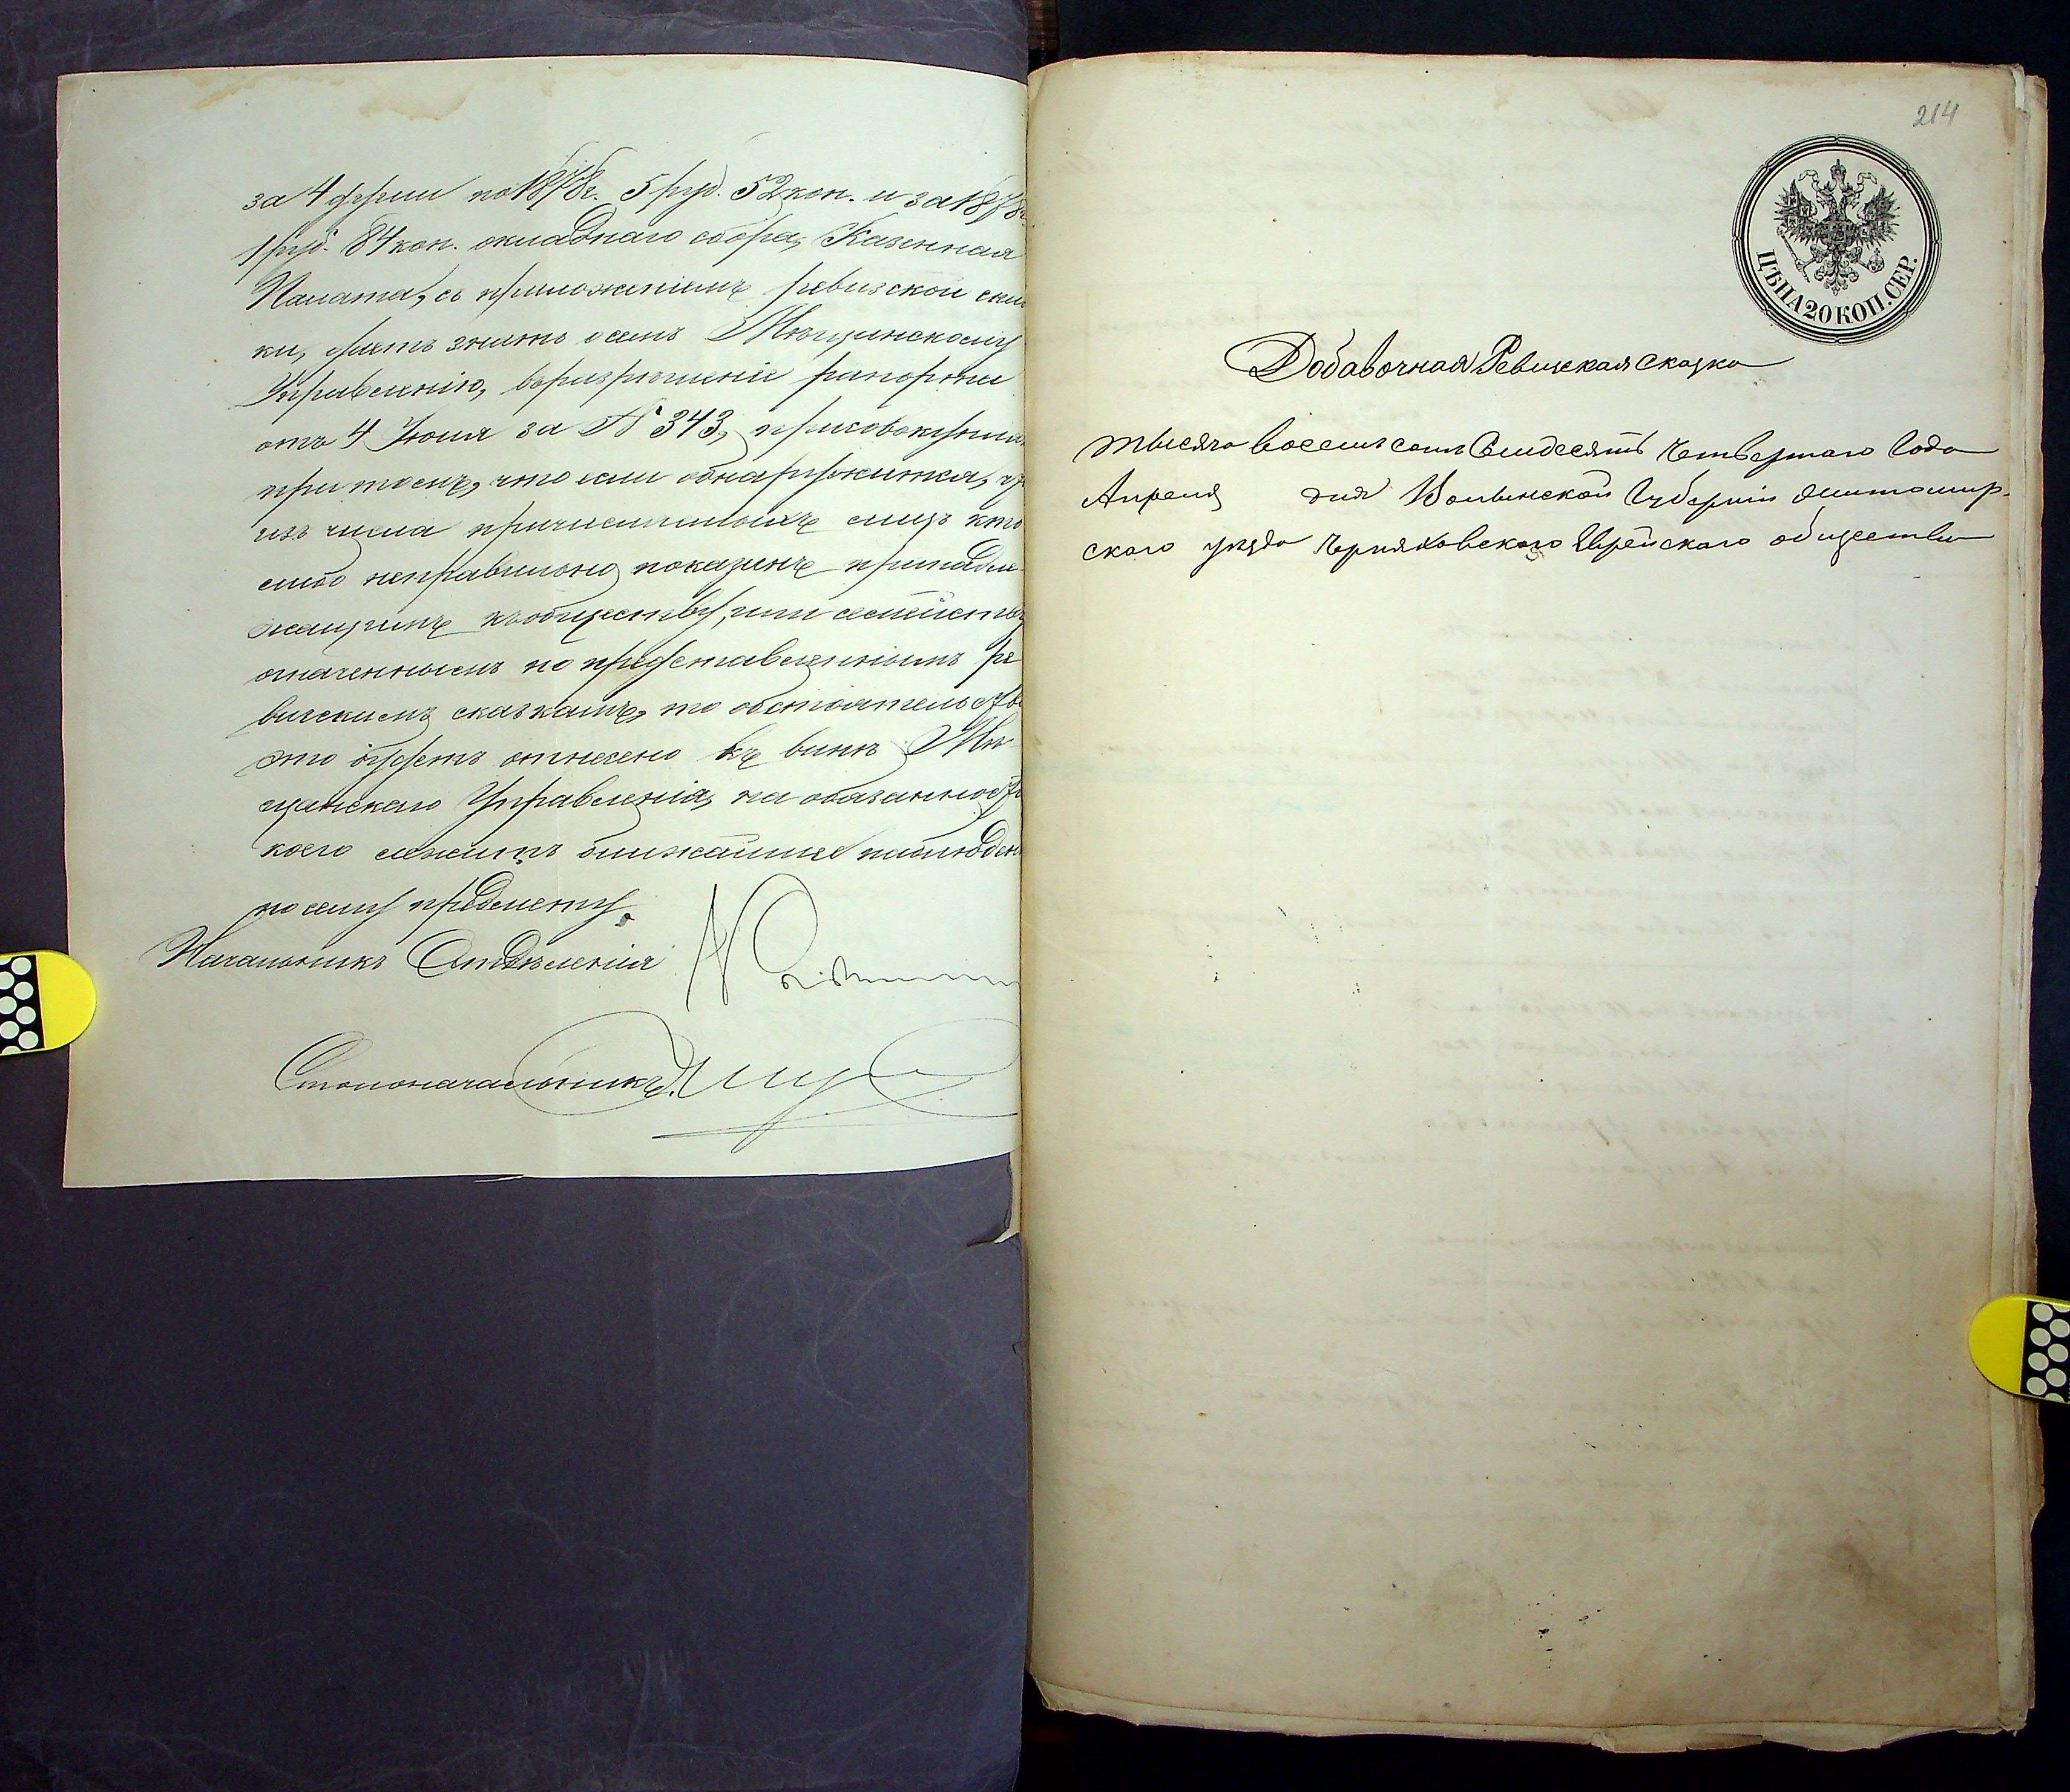 за 4 души по 1878 г. 5 руб. 52 коп. и за 1878
1 руб. 84 коп. окладнаго сбора, Казенная
Палата, съ приложеніемъ ревизской сказ
ки, даетъ знать о семъ Мѣщанскому
Управленію, въ разрѣшеніе рапорта
отъ 4 Іюня за № 343,
при томъ, что если обнаружится, ч
изъ числа причисленныхъ лицъ кто
либо неправильно показанъ принадле
жащимъ къ обществу, или семейству
означеннымъ по представленнымъ ре
визскимъ сказкамъ, то обстоятельств
это будетъ отнесено къ винѣ Мѣ
щанскаго Управленія, на обязанност
коего лежитъ ближайшее наблюден
по сему предмету.
Начальникъ Отдѣленія
Столоначальникъ
214
ЦѢНА 20 КОП. СЕР.
Добавочная Ревизская сказка
тысяча восемьсотъ Семдесятъ четвертаго Года
Апреля дня Волынской Губерніи Житомир-
скаго уѣзда Черняховскаго Еврейскаго общества